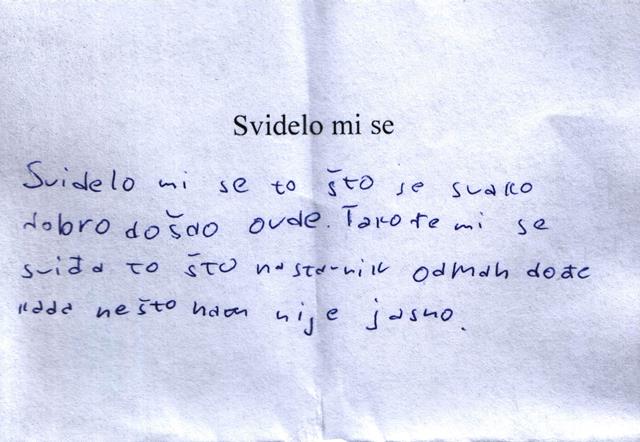 Svidelo mi se
Svidelo mi se to što je svako
dobro došao ovde. Takođe mi se
sviđa to što nastavnik odmah dođe
kada nešto nam nije jasno.